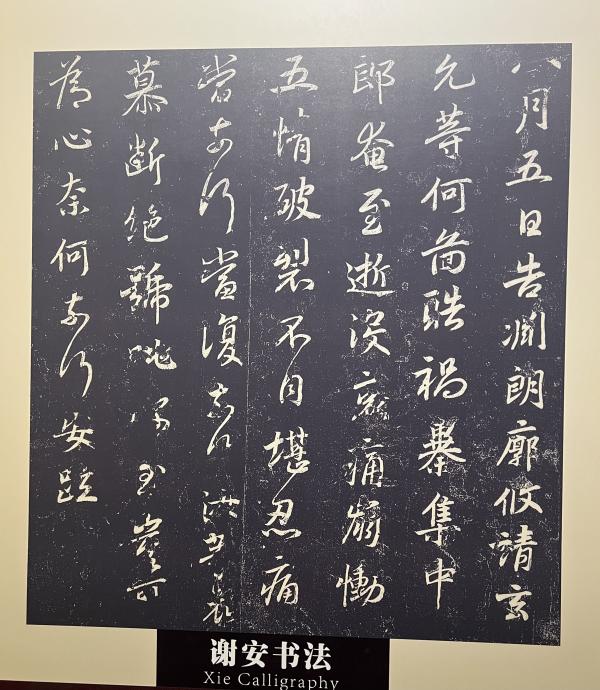 八月五日告淵朗廓攸靖玄
允等何啚酷禍暴集中
郎奄至逝没哀痛崩慟
五情破裂不自堪忍痛
當奈何當復奈何汝等哀
慕斷絶號咷深至豈可
為心奈何奈何安疏
谢安书法
Xie Calligraphy